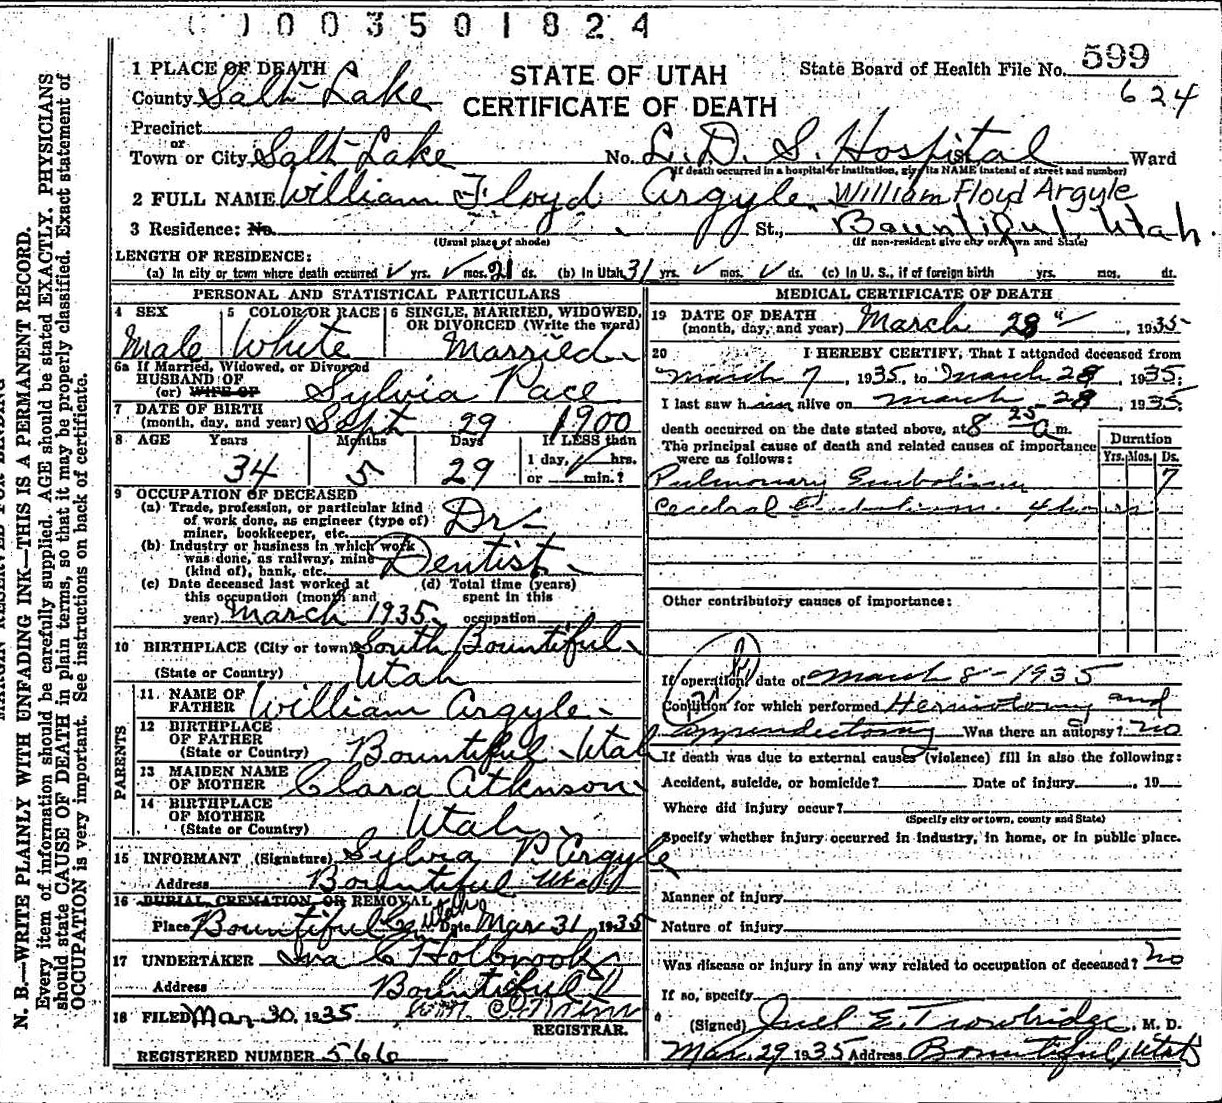 0003501824
599
State Board of Health File No.
624
STATE OF UTAH
CERTIFICATE OF DEATH
1 PLACE OF DEATH
County Salt Lake
Precinct
or
Town or City Salt Lake No. L. D. S. Hospital St. Ward
(If death occurred in a hospital or institution, give its NAME instead of street and number)
2 FULL NAME William Floyd Argyle William Floyd Argyle
3 Residence: No. St., Bountiful, Utah.
(Usual place of abode) (If non-resident give city or town and State)
LENGTH OF RESIDENCE:
(a) In city or town where death occurred yrs. mos. 21 ds. (b) In Utah 31 yrs. mos. ds. (c) In U. S., if of foreign birth yrs. mos. ds.
PERSONAL AND STATISTICAL PARTICULARS
4 SEX 5 COLOR OR RACE 6 SINGLE, MARRIED, WIDOWED, OR DIVORCED (Write the word)
Male White Married
6a If Married, Widowed, or Divorced
HUSBAND OF
(or) WIFE OF Sylvia Pace
7 DATE OF BIRTH
(month, day, and year) Sept 29 1900
8 AGE Years Months Days If LESS than
34 5 29 1 day, hrs.
or min.?
9 OCCUPATION OF DECEASED
(a) Trade, profession, or particular kind
of work done, as engineer (type of)
miner, bookkeeper, etc. Dr
(b) Industry or business in which work
was done, as railway, mine
(kind of), bank, etc. Dentist
(c) Date deceased last worked at (d) Total time (years)
this occupation (month and spent in this
year) March 1935 occupation
10 BIRTHPLACE (City or town) South Bountiful
(State or Country) Utah
PARENTS
11 NAME OF
FATHER William Argyle
12 BIRTHPLACE
OF FATHER
(State or Country) Bountiful Utah
13 MAIDEN NAME
OF MOTHER Clara Atkinson
14 BIRTHPLACE
OF MOTHER
(State or Country) Utah
15 INFORMANT (Signature) Sylvia P. Argyle
Address Bountiful Utah
16 BURIAL, CREMATION, OR REMOVAL
Place Bountiful Utah Date Mar 31 1935
17 UNDERTAKER Ira C Holbrook
Address Bountiful U
18 FILED Mar 30, 1935
REGISTRAR.
REGISTERED NUMBER 566
MEDICAL CERTIFICATE OF DEATH
19 DATE OF DEATH
(month, day, and year) March 28 , 1935
20 I HEREBY CERTIFY, That I attended deceased from
March 7, 1935, to March 28, 1935;
I last saw him alive on March 28, 1935
death occurred on the date stated above, at 8 25 a m.
The principal cause of death and related causes of importance
were as follows:
Duration
Yrs. Mos. Ds.
Pulmonary Embolism 7
Cerebral Embolism 4 hours
Other contributory causes of importance:
If operation, date of March 8 - 1935
Condition for which performed Herniotomy and
Appendectomy Was there an autopsy? no
If death was due to external causes (violence) fill in also the following:
Accident, suicide, or homicide? Date of injury , 19
Where did injury occur?
(Specify city or town, county and State)
Specify whether injury occurred in industry, in home, or in public place.
Manner of injury
Nature of injury
Was disease or injury in any way related to occupation of deceased? no
If so, specify
(Signed) Juel E. Trowbridge, M. D.
Mar. 29 1935 Address Bountiful, Utah
N. B.—WRITE PLAINLY WITH UNFADING INK—THIS IS A PERMANENT RECORD.
Every item of information should be carefully supplied. AGE should be stated EXACTLY. PHYSICIANS
should state CAUSE OF DEATH in plain terms, so that it may be properly classified. Exact statement of
OCCUPATION is very important. See instructions on back of certificate.